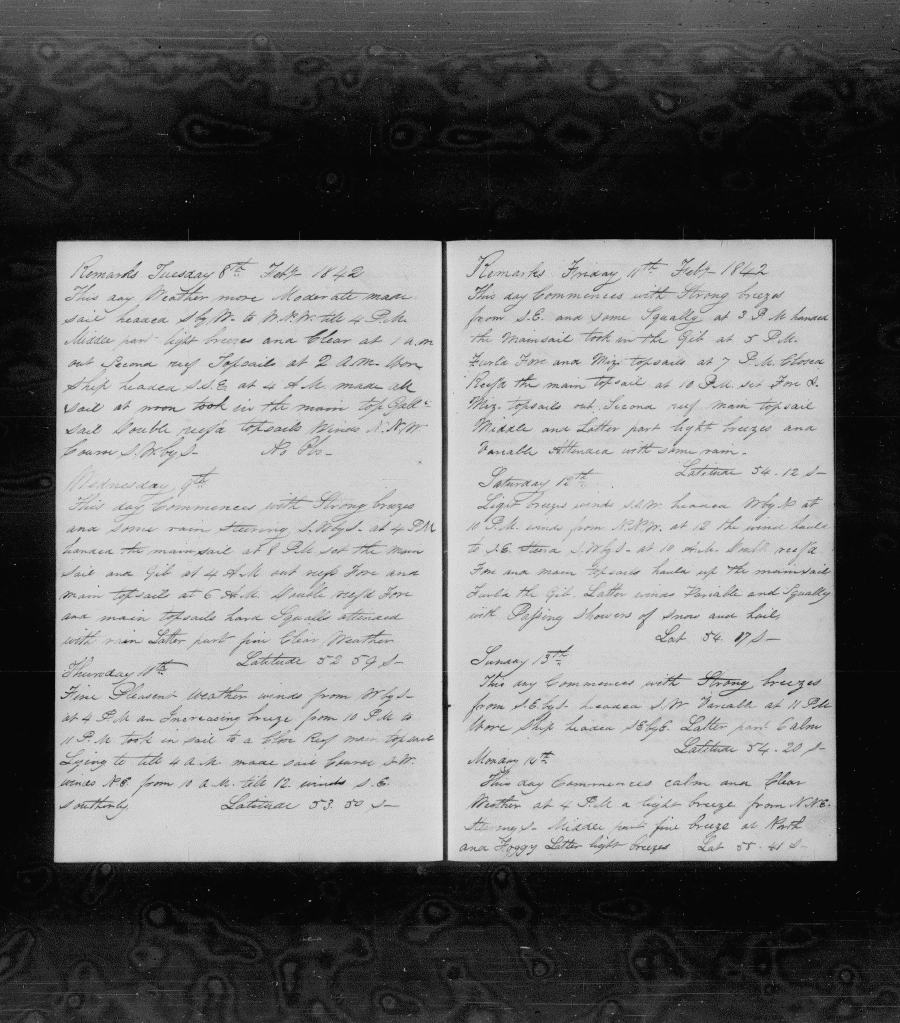 Remarks Tuesday 8th Feby 1842
This day Weather more Moderate made
sail headed S by W. to W.N.W. till 4 P.M.
Middle part light breezes and Clear at 1 a.m
out Second reef Topsails at 2 A.M. Wore
Ship headed S.S.E at 4 A.M. made all
sail at noon took in the main top Gallt
sail Double reef'd topsails Winds N.N.W
Course S.W by S- No Obs-
Wednesday 9th
This day Commences with Strong breezes
and some rain steering S.W by S- at 4 P.M
handed the mainsail at 8 P.M set the main
sail and Gib at 4 A.M out reefs Fore and
main topsail at 6 A.M. Double reef'd Fore
and main topsails hard Squalls attended
with rain Latter part fine Clear Weather
Latitude 52 59 S-
Thursday 10th
Fine Pleasent weather winds from W by S-
at 4 P.M an Increasing breeze from 10 P.M to
11 P.M took in sail to a Close Reef main topsail
Lying to till 4 A.M. made sail Course S-W.
winds N.E. from 10 A.M. till 12 winds S.E.
Southerly Latitude 53. 50 S-
Remarks Friday 11th Feby 1842
This day Commences with Strong breezes
from S.E. and some Squally at 3 P.M handed
the Mainsail took in the Gib at 5 P.M.
Furld Fore and Miz. topsails at 7 P.M. Closed
Reef'd the main topsail at 10 P.M. set Fore &
Miz. topsails out Second reef main topsail
Middle and Latter part light breezes and
Variable Attended with some rain-
Latitude 54. 12 S-
Saturday 12th
Light breezes winds S.S.W. headed W by N at
10 P.M. winds from N.N.W. at 12 the wind hauld
to S.E. Steerd S.W by S- at 10 A.M. Double reef'd
Fore and main topsails hauld up the mainsail
Furld the Gib. Latter winds Variable and Squally
with Passing showers of snow and hail,
Lat 54. 17 S-
Sunday 13th
This day Commences with Strong breezes
from S.E by S- headed S.W Variable at 11 P.M
Wore Ship headed S E by E. Latter part Calm
Latitude 54. 20 S-
Monday 14th
This day Commences calm and Clear
Weather at 4 P.M a light breeze from N.N.E.
Steering S- Middle part fine breeze at North
and Foggy Latter light breezes Lat 55. 41 S-